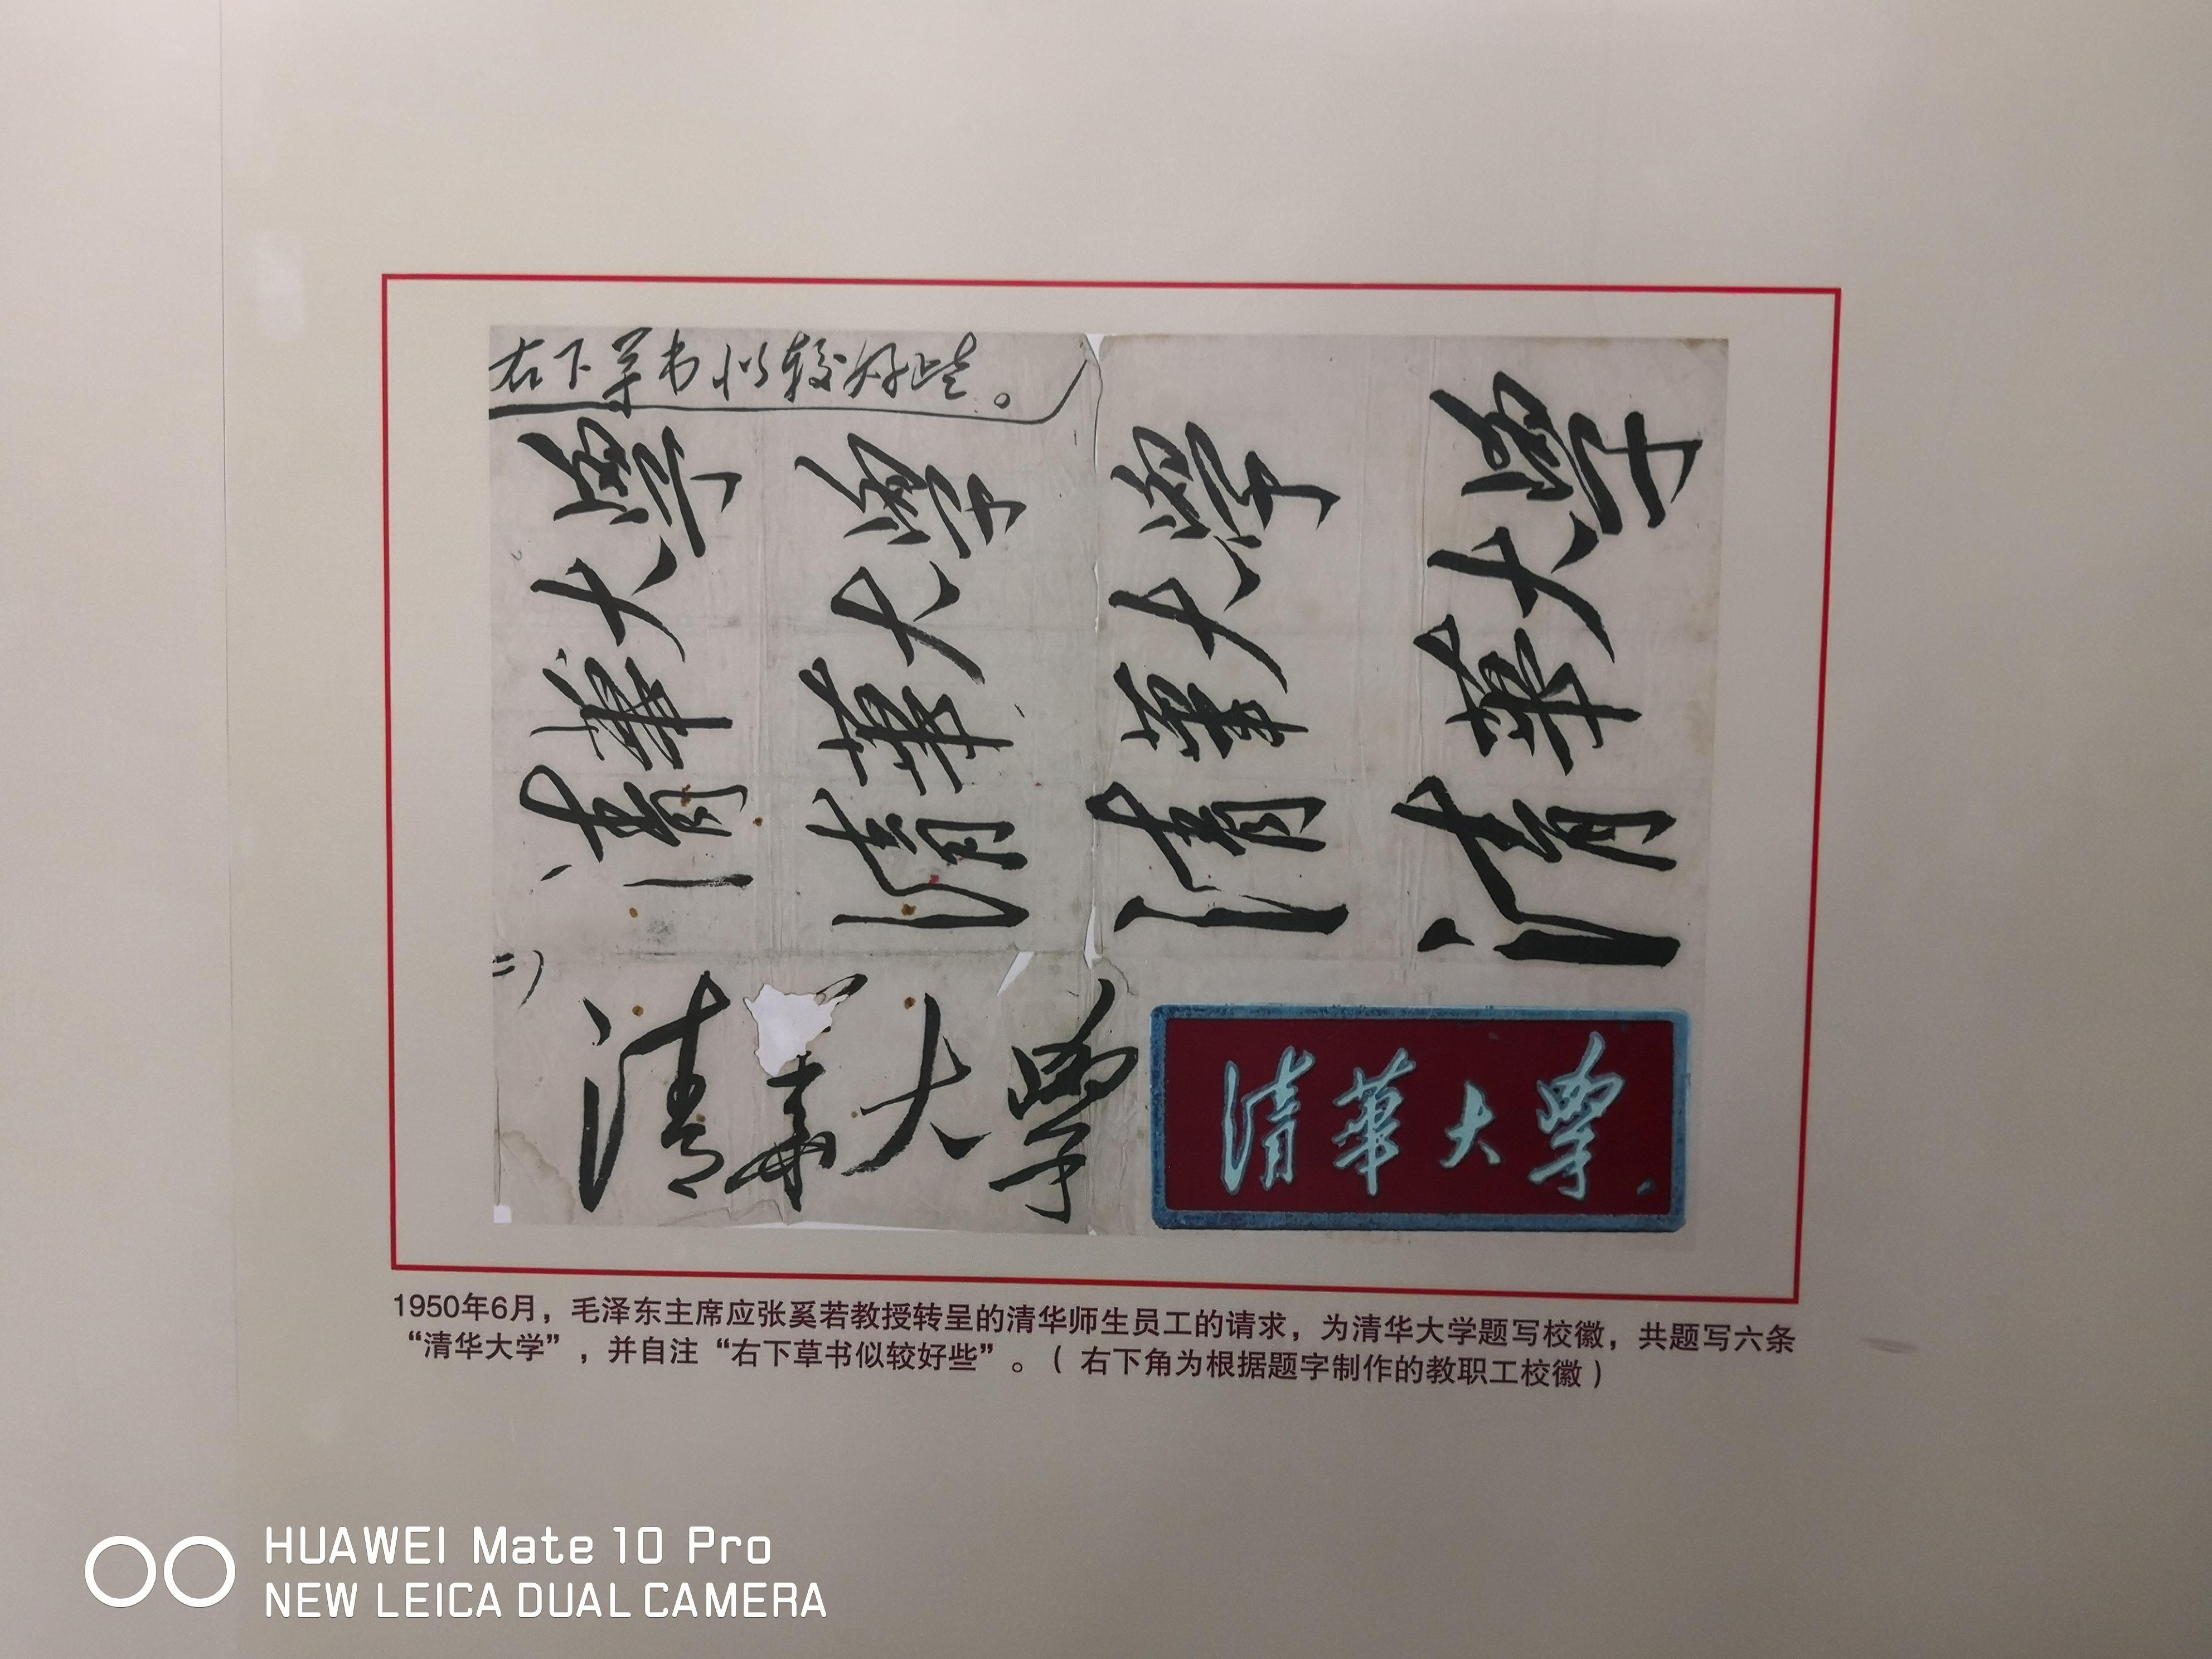 右下草书似较好些。
清華大學
清華大學
清華大學
清華大學
二)
清華大學
清華大學
1950年6月，毛泽东主席应张奚若教授转呈的清华师生员工的请求，为清华大学题写校徽，共题写六条
“清华大学”，并自注“右下草书似较好些”。（右下角为根据题字制作的教职工校徽）
HUAWEI Mate 10 Pro
NEW LEICA DUAL CAMERA